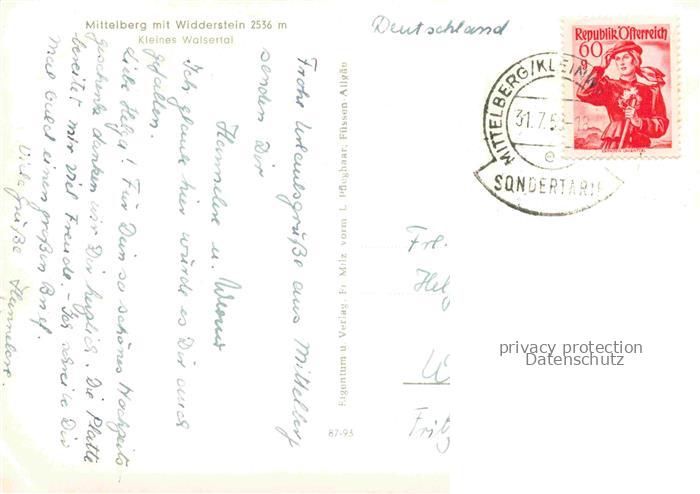 Mittelberg mit Widderstein 2536 m
Kleines Walsertal
Frohe Urlaubsgrüße aus Mittelberg
senden Dir
Hannelore u. Werner
Ich glaube hier würde es Dir auch
gefallen.
Liebe Helga! Für Dein so schönes Hochzeits-
geschenk danken wir Dir herzlich. Die Platte
bereitet mir viel Freude. - Ich schreibe Dir
mal bald einen großen Brief.
Viele Grüße Hannelore.
Eigentum u. Verlag. Fr. Milz vorm. L. Pfleghaar, Füssen-Allgäu
87-93
Deutschland
Republik Österreich
60 g
MITTELBERG/KLEINW
31.7.5
e
SONDERTARIF
Frl.
Hel
Fritz
privacy protection
Datenschutz